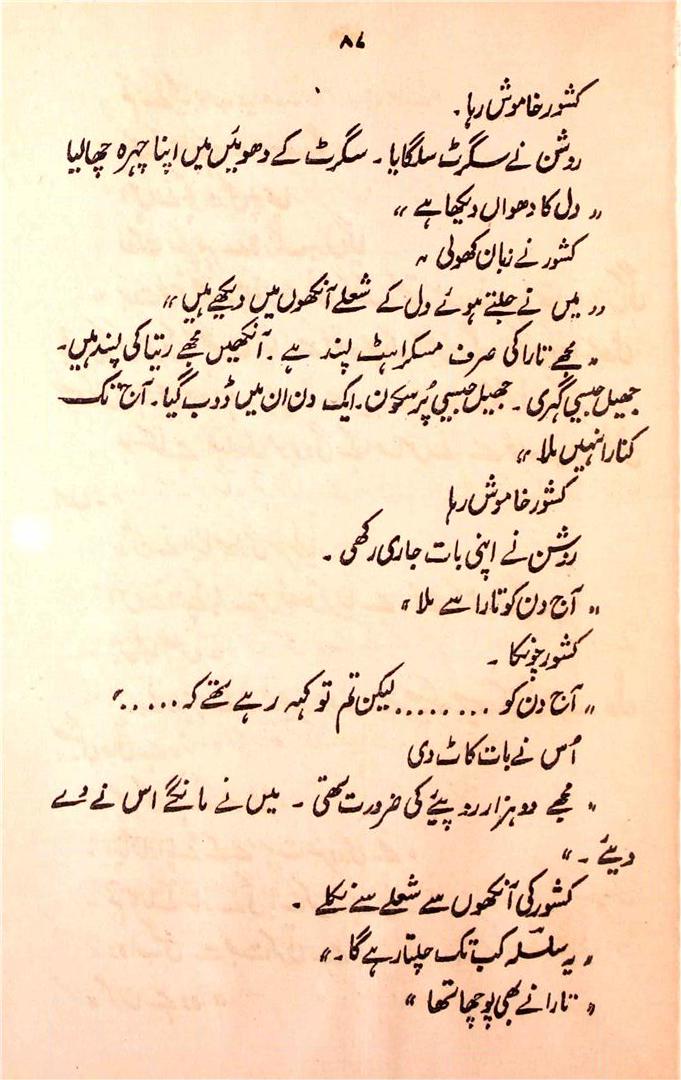 ۸۷
کشور خاموش رہا۔
روشن نے سگرٹ سلگایا۔ سگرٹ کے دھوئیں میں اپنا چہرہ چھپا لیا
” دل کا دھواں دیکھا ہے “
کشور نے زبان کھولی ”
” میں نے جلتے ہوئے دل کے شعلے آنکھوں میں دیکھے ہیں “
” مجھے تارا کی صرف مسکراہٹ پسند ہے۔ آنکھیں مجھے رتیا کی پسند ہیں۔
جھیل جیسی گہری۔ جھیل جیسی پُر سکون۔ ایک دن ان میں ڈوب گیا۔ آج تک
کنارا نہیں ملا “
کشور خاموش رہا
روشن نے اپنی بات جاری رکھی۔
” آج دن کو تارا سے ملا “
کشور چونکا۔
” آج دن کو ........ لیکن تم تو کہہ رہے تھے کہ ..... “
اُس نے بات کاٹ دی
” مجھے دو ہزار روپیئے کی ضرورت تھی۔ میں نے مانگے اس نے دے
دیئے۔ “
کشور کی آنکھوں سے شعلے سے نکلے۔
” یہ سلسلہ کب تک چلتا رہے گا۔ “
” تارا نے بھی پوچھا تھا “